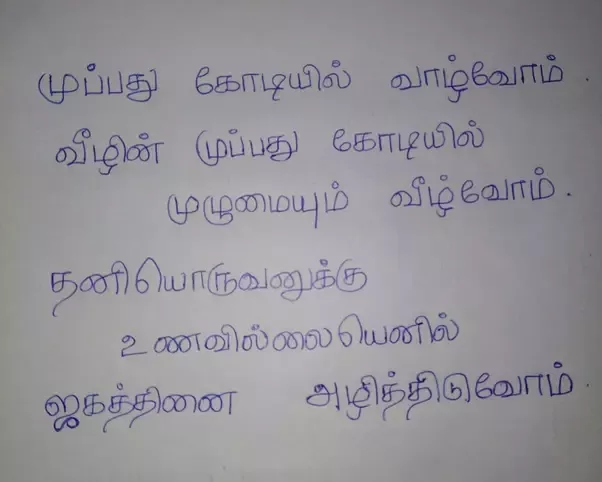 முப்பது கோடியில் வாழ்வோம்.
வீழின் முப்பது கோடியில்
முழுமையும் வீழ்வோம்.
தனியொருவனுக்கு
உணவில்லையெனில்
ஜகத்தினை அழித்திடுவோம்.